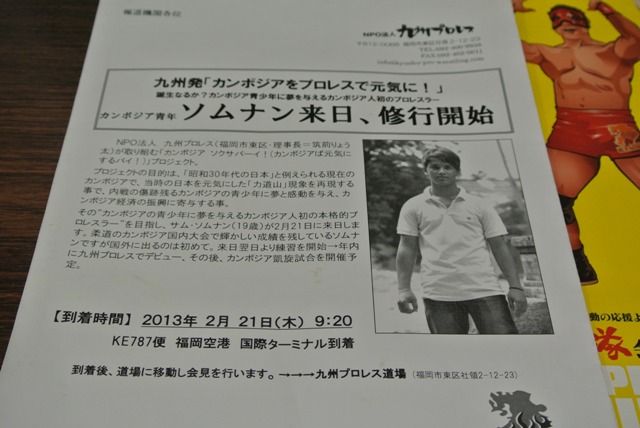 報道機関各位
NPO法人 九州プロレス
福岡市東区社領2-12-23
九州発「カンボジアをプロレスで元気に！」
誕生なるか？カンボジア青少年に夢を与えるカンボジア人初のプロレスラー
カンボジア青年 ソムナン来日、修行開始
NPO法人 九州プロレス（福岡市東区・理事長＝筑前りょう
太）が取り組む「カンボジア ソクサバーイ！（カンボジアば元気に
するバイ！）」プロジェクト。
プロジェクトの目的は、「昭和30年代の日本」と例えられる現在の
カンボジアで、当時の日本を元気にした「力道山」現象を再現する
事で、内戦の傷跡残るカンボジアの青少年に夢と感動を与え、カ
ンボジア経済の振興に寄与する事。
その“カンボジアの青少年に夢を与えるカンボジア人初の本格的プ
ロレスラー”を目指し、サム・ソムナン（19歳）が2月21日に来日しま
す。柔道のカンボジア国内大会で輝かしい成績を残しているソムナ
ンですが国外に出るのは初めて。来日翌日より練習を開始→年内
に九州プロレスでデビュー、その後、カンボジア凱旋試合を開催予
定。
【到着時間】 2013年 2月 21日（木） 9：20
KE787便 福岡空港 国際ターミナル到着
到着後、道場に移動し会見を行います。→→→九州プロレス道場（福岡市東区社領2-12-23）
動の応援よ
隊